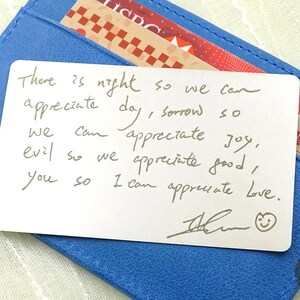 HSBC
There is night so we can
appreciate day, sorrow so
we can appreciate joy,
evil so we appreciate good,
you so I can appreciate love.